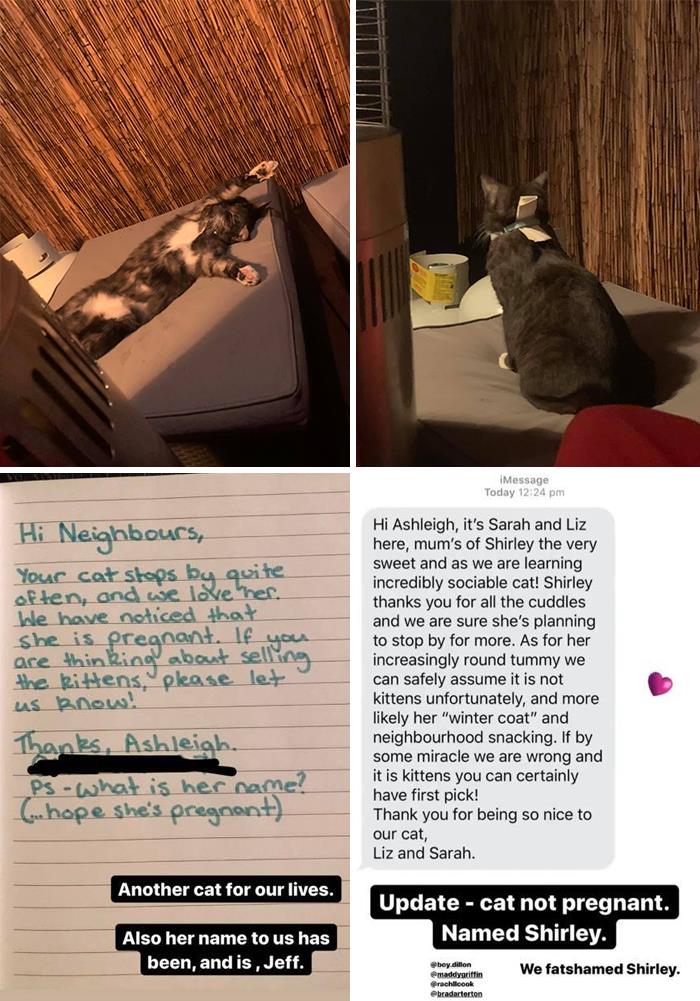 Hi Neighbours,
Your cat stops by quite
often, and we love her.
We have noticed that
she is pregnant. If you
are thinking about selling
the kittens, please let
us know!
Thanks, Ashleigh.
PS - what is her name?
(...hope she's pregnant)
Another cat for our lives.
Also her name to us has
been, and is , Jeff.
iMessage
Today 12:24 pm
Hi Ashleigh, it's Sarah and Liz
here, mum's of Shirley the very
sweet and as we are learning
incredibly sociable cat! Shirley
thanks you for all the cuddles
and we are sure she's planning
to stop by for more. As for her
increasingly round tummy we
can safely assume it is not
kittens unfortunately, and more
likely her “winter coat” and
neighbourhood snacking. If by
some miracle we are wrong and
it is kittens you can certainly
have first pick!
Thank you for being so nice to
our cat,
Liz and Sarah.
Update - cat not pregnant.
Named Shirley.
@boy.dillon
@maddygriffin
@rachllcook
@bradarterton
We fatshamed Shirley.